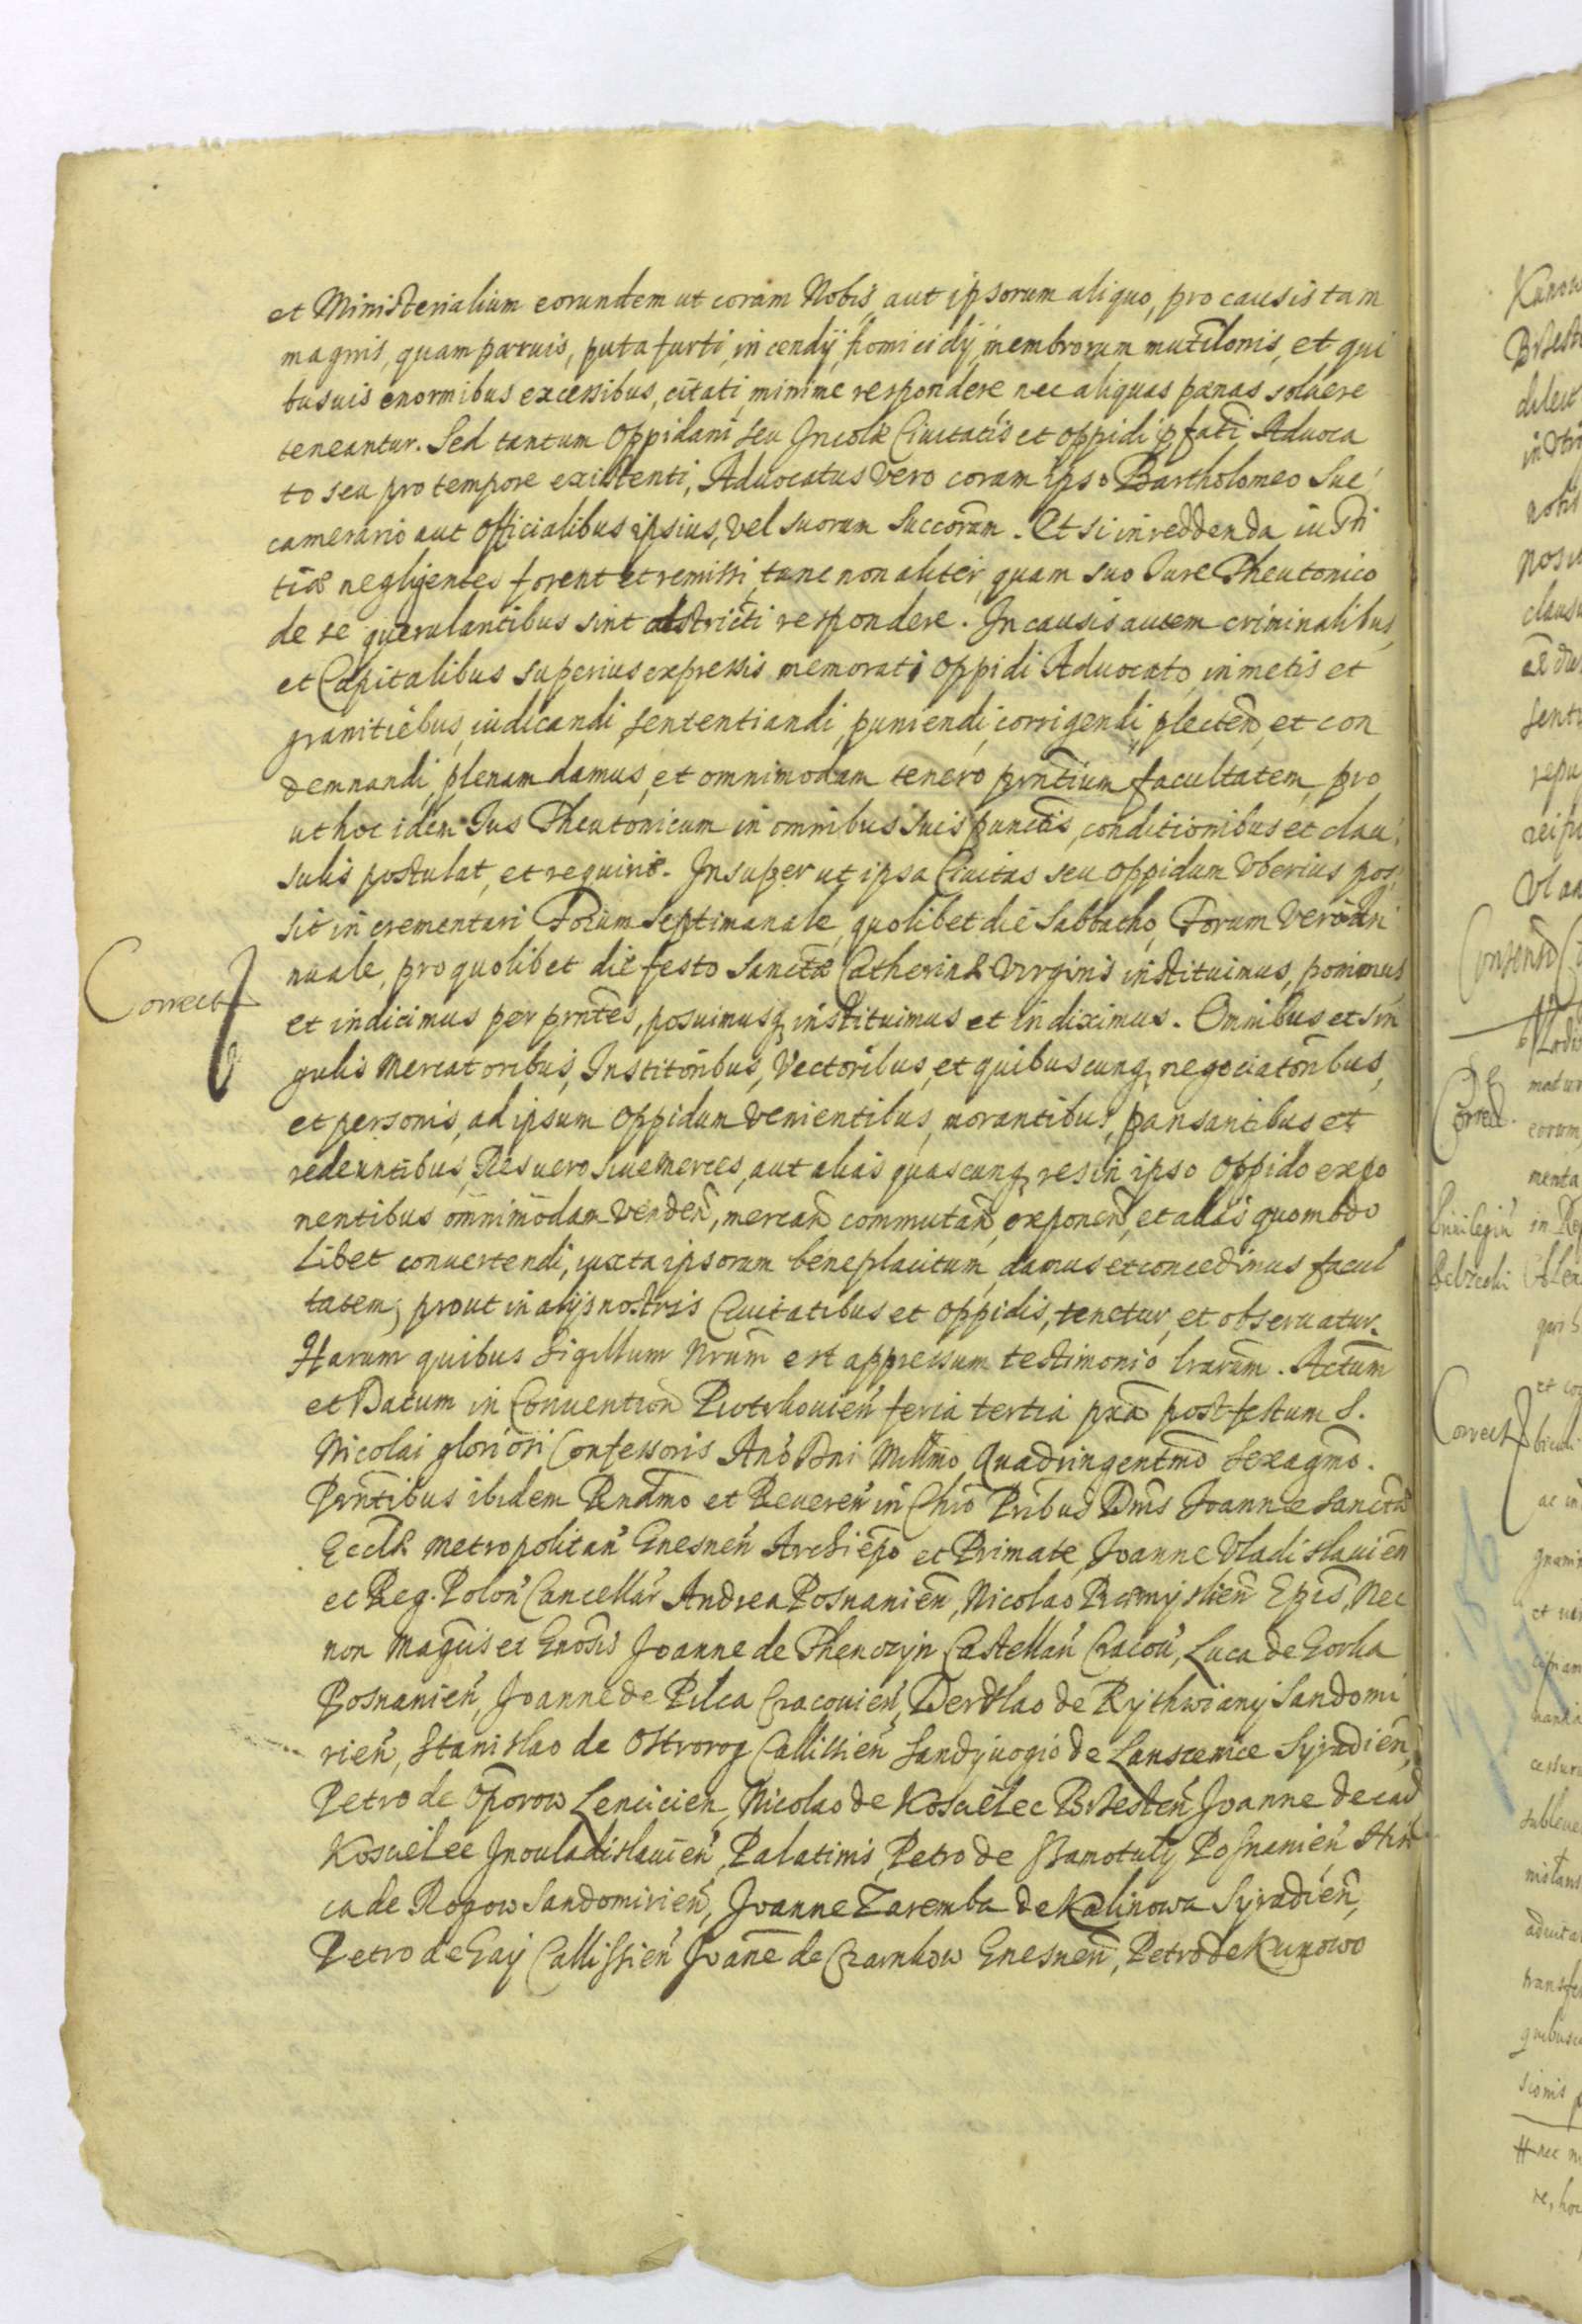 et Ministerialium eorundem ut coram Nobis, aut ipsorum aliquo, pro causis tam
magnis, quam parvis, puta furti, incendij, homicidij, membrorum mutilonis, et qui
busvis enormibus excessibus, citati, minime respondere nec aliquas pænas soluere
teneantur. Sed tantum Oppidani seu Incolæ Ciuitatis et oppidi pfati Aduoca
to seu pro tempore existenti, Aduocatus vero coram ipso Bartholomeo Suc
camerario aut Officialibus ipsius, vel suorum Succorum. Et si in reddenda iusti
tia negligentes forent et remissi, tunc non aliter, quam suo Iure Theutonico
de se querulantibus sint abstricti respondere. In causis autem criminalibus,
et Capitalibus superius expressis memorati oppidi Aduocato, in metis et
granitiebus, iudicandi, sententiandi, puniendi, corrigendi, plecten, et con
demnandi, plenam damus, et omnimodam tenero prntium facultatem, pro
ut hoc idem Ius Theutonicum in omnibus suis punctis, conditionibus et clau
sulis postulat, et requirit. Insuper ut ipsa Ciuitas seu oppidum vberius pos
sit in crementari Forum septimanale, quolibet die Sabbatho, Forum vero An
nuale, pro quolibet die festo Sanctæ Catherinæ Virginis instituimus, ponimus
Correct
et indicimus per prntes, posuimusq, instituimus et indiximus. Omnibus et sin
gulis Mercatoribus, Institoribus, Vectoribus, et quibuscunq, negociatoribus,
et personis, ad ipsum oppidum venientibus, morantibus, pansantibus et
redeuntibus, Res vero siue merces, aut alias quascunq, res in ipso oppido expo
nentibus omnimodam venden, mercan, commutan, exponen, et alias quomodo
libet conuertendi, iuxta ipsorum beneplacitum, damus et concedimus facul
tatem, prout in alijs nostris Ciuitatibus et oppidis, tenetur, et obseruatur.
Harum quibus Sigillum nrum est appressum testimonio lrarum. Actum
et Datum in Conuention Piotrkouien feria tertia pxa post festum S.
Nicolai gloriosi Confessoris Ano Dni Millmo Quadringentmo sexagmo.
Prntibus ibidem Rndmo et Reueren in Chro Pribus Dnis Joanne Sanctæ
Eccliæ metropolitan Gnesnen Archiepo et Primate, Joanne Vladislauien
et Reg. Polon Cancellar Andrea Posnanien, Nicolao Præmyslien Epis, Nec
non Magcis et Gnosis Joanne de Thenczyn Castellan Cracou, Luca de Gorka
Posnanien, Joanne de Pilca Cracouien, Derslao de Rythwiany Sandomi
rien, Stanislao de Ostrorog Callissien Sandiuogio de Lanscenice Syradien,
Petro de Oporow Lencicien, Nicolao de Koscielec Brzesten Joanne de ead
Koscielec Jnouladislauien, Palatinis, Petro de Szamotuly Posnanien,
ca de Rogow Sandomirien, Joanne Zaremba de Kalinowa Syradien,
Petro de Gay Callissien Joane de Czarnkow Gnesnen, Petro de Kunowo